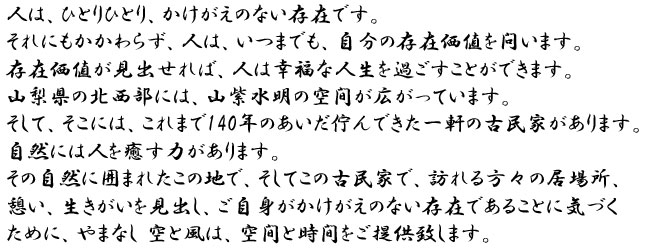 人は、ひとりひとり、かけがえのない存在です。
それにもかかわらず、人は、いつまでも、自分の存在価値を問います。
存在価値が見出せれば、人は幸福な人生を過ごすことができます。
山梨県の北西部には、山紫水明の空間が広がっています。
そして、そこには、これまで140年のあいだ佇んできた一軒の古民家があります。
自然には人を癒す力があります。
その自然に囲まれたこの地で、そしてこの古民家で、訪れる方々の居場所、
憩い、生きがいを見出し、ご自身がかけがえのない存在であることに気づく
ために、やまなし 空と風は、空間と時間をご提供致します。